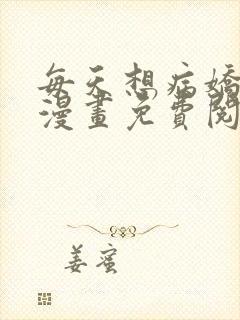 每天想病嬌
漫畫免費閱
姜蜜